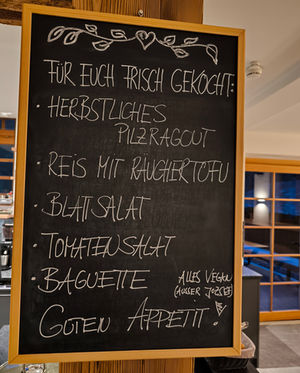 FÜR EUCH FRISCH GEKOCHT:
· HERBSTLICHES
PILZRAGOUT
· REIS MIT RÄUCHERTOFU
· BLATTSALAT
· TOMATENSALAT
· BAGUETTE
ALLES VEGAN
(AUSSER JOZSEF)
GUTEN APPETIT!